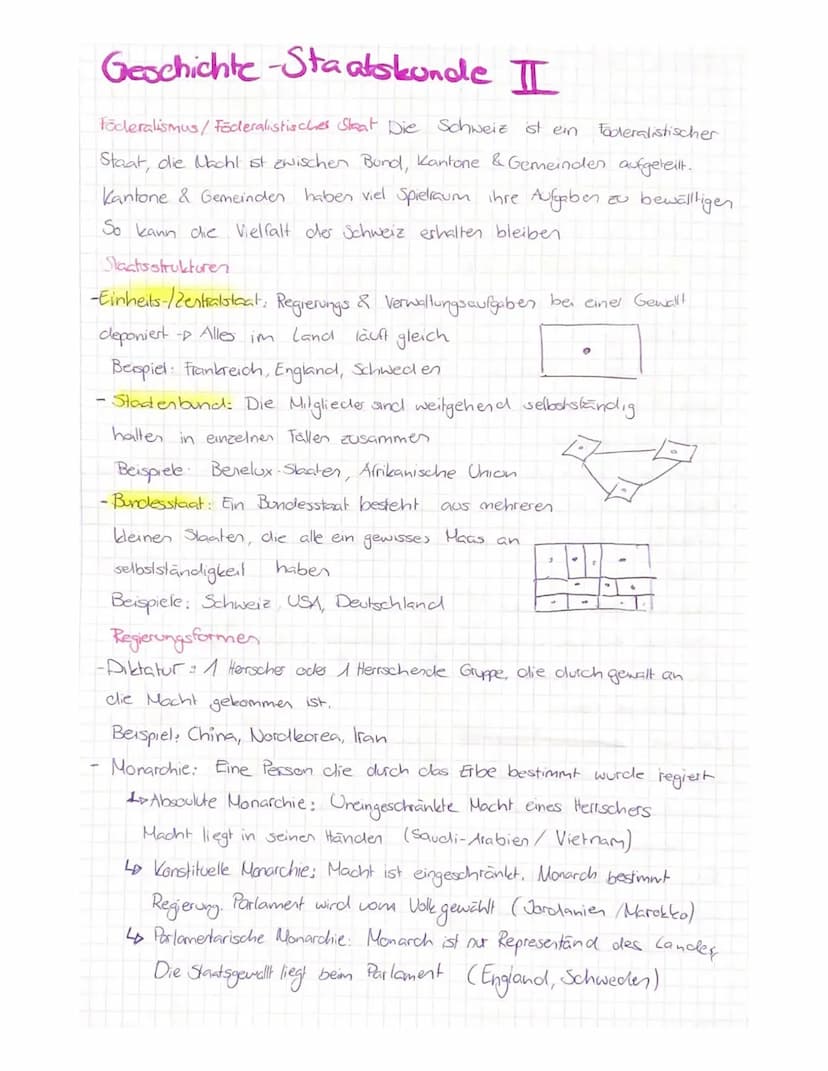 Geschichte - Staatskunde II
Föderalismus / Föderalistischer Staat Die Schweiz ist ein Föderalistischer
Staat, die Macht ist zwischen Bund, Kantone & Gemeinden aufgeteilt.
Kantone & Gemeinden haben viel Spielraum ihre Aufgaben zu bewälltigen
So kann die Vielfalt der Schweiz erhalten bleiben
Staatsstrukturen
- Einheits-/Zentralstaat: Regierungs & Verwaltungsaufgaben bei einer Gewalt
deponiert → Alles im Land läuft gleich
Beispiel: Frankreich, England, Schweden
- Staatenbund: Die Mitglieder sind weitgehend selbstständig
halten in einzelnen Fällen zusammen
Beispiele: Benelux-Staaten, Afrikanische Union
- Bundesstaat: Ein Bundesstaat besteht aus mehreren
kleinen Staaten, die alle ein gewisses Mass an
selbstständigkeit haben
Beispiele: Schweiz, USA, Deutschland
Regierungsformen
- Diktatur: 1 Herrscher oder 1 Herrschende Gruppe, die durch gewalt an
die Macht gekommen ist.
Beispiel: China, Nordkorea, Iran
- Monarchie: Eine Person die durch das Erbe bestimmt wurde regiert
↳ Absoulute Monarchie: Uneingeschränkte Macht eines Herrschers
Macht liegt in seinen Händen (Saudi-Arabien / Vietnam)
↳ Konstituelle Monarchie: Macht ist eingeschränkt. Monarch bestimmt
Regierung. Parlament wird vom Volk gewählt (Jordanien / Marokko)
↳ Parlamentarische Monarchie: Monarch ist nur Representänd des Landes
Die Staatsgewallt liegt beim Parlament (England, Schweden)